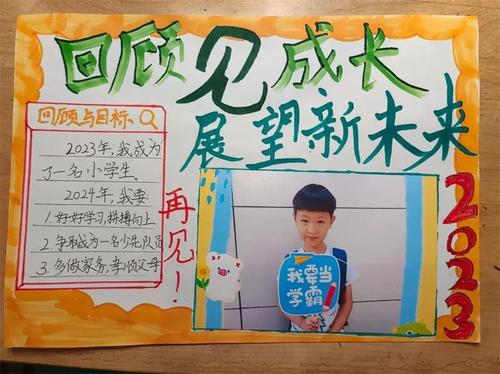 回顾见成长
展望新未来
回顾与目标
2023年,我成为
了一名小学生。
2024年,我要:
1.好好学习,拼搏向上
2.争取成为一名少先队员
3.多做家务,孝顺父母
再见!
2023
我要当
学霸